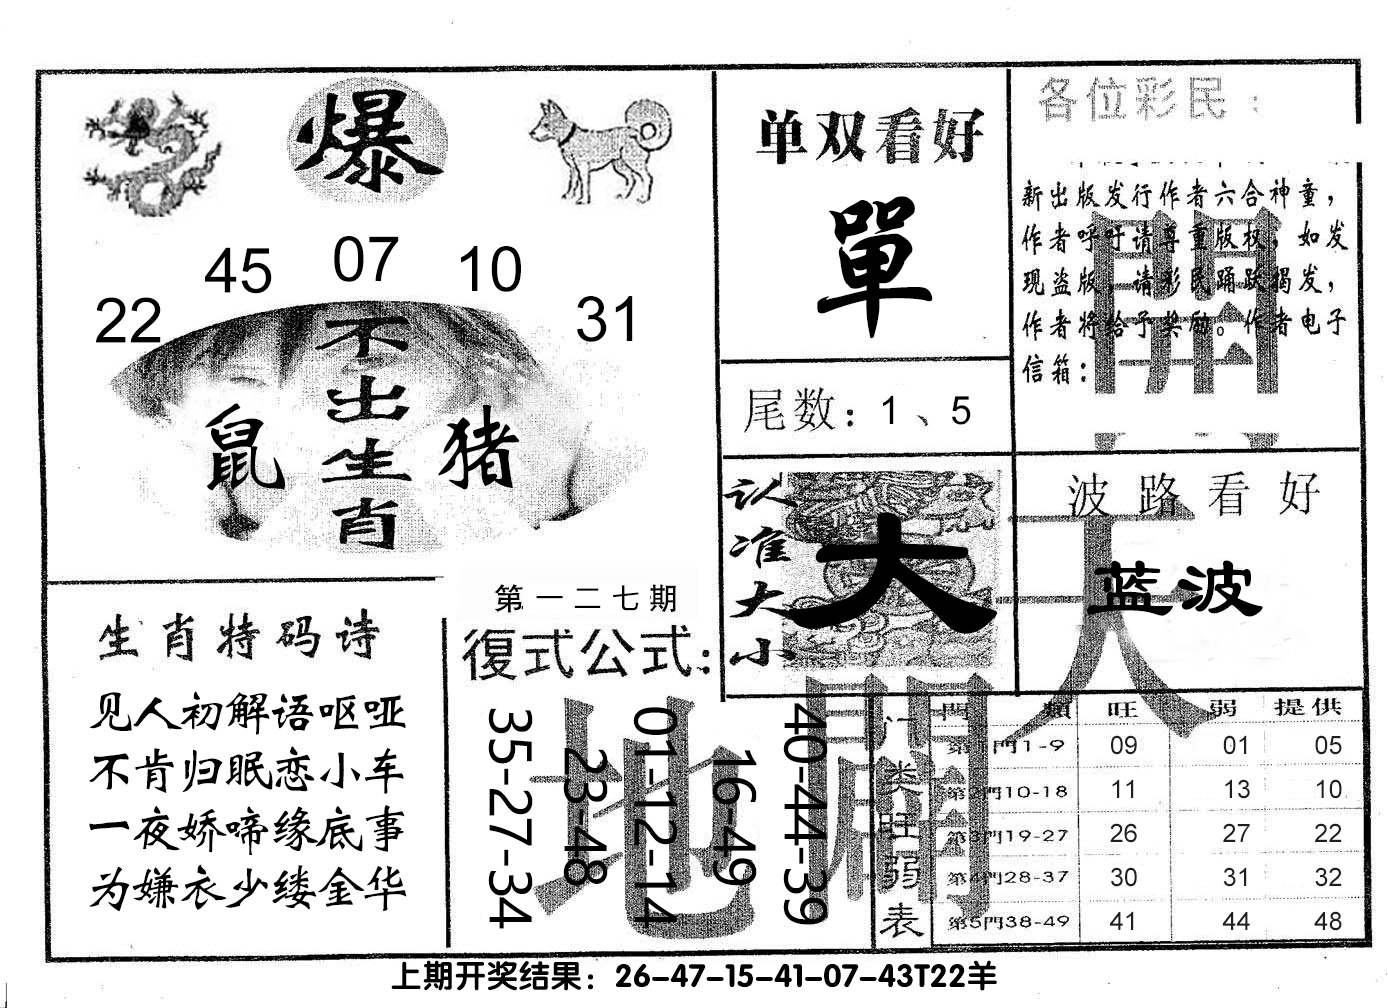 爆
22 45 07 10 31
不出生肖
鼠 猪
单双看好
單
尾数：1、5
认准大小
大
各位彩民：
新出版发行作者六合神童，
作者呼吁请尊重版权，如发
现盗版，请彩民踊跃揭发，
作者将给予奖励。作者电子
信箱：
波路看好
蓝波
生肖特码诗
见人初解语呕哑
不肯归眠恋小车
一夜娇啼缘底事
为嫌衣少缕金华
第一二七期
復式公式：
35-27-34
23-48
01-12-14
16-49
40-44-39
天
地
门类旺弱表
門類 旺 弱 提供
第1門1-9 09 01 05
第2門10-18 11 13 10
第3門19-27 26 27 22
第4門28-37 30 31 32
第5門38-49 41 44 48
上期开奖结果：26-47-15-41-07-43T22羊